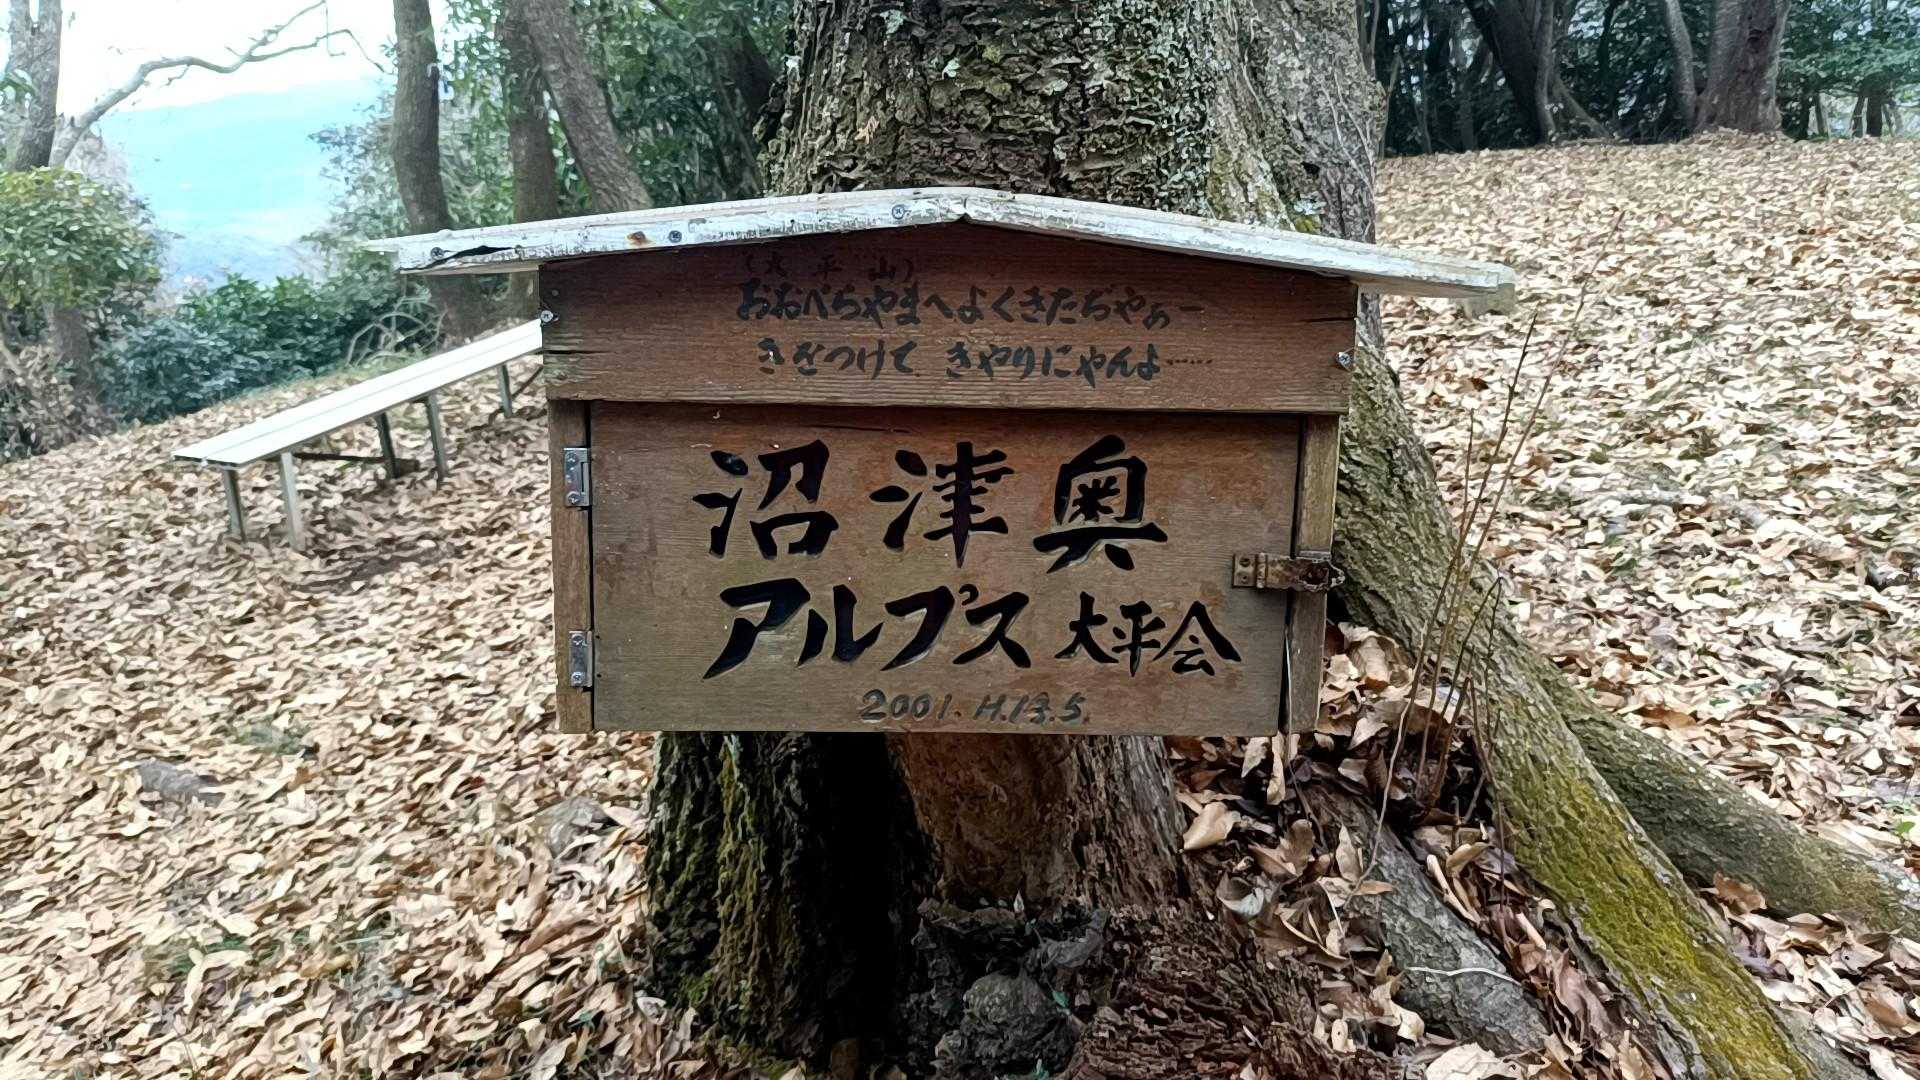 (大平山)
おおべらやまへよくきたぢやぁー
きをつけて きやりにゃんよ……
沼津奥
アルプス 大平会
2001.H.13.5.